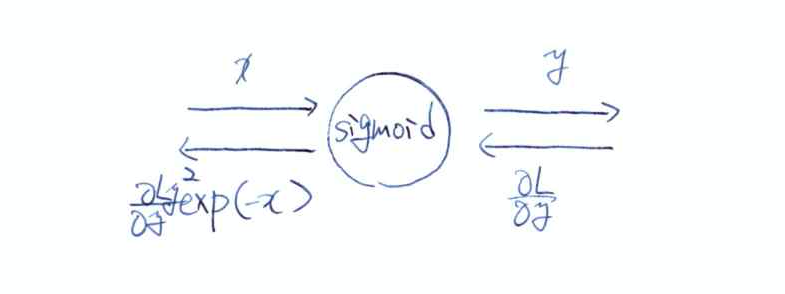 x y
sigmoid
∂L/∂y y² exp(-x) ∂L/∂y